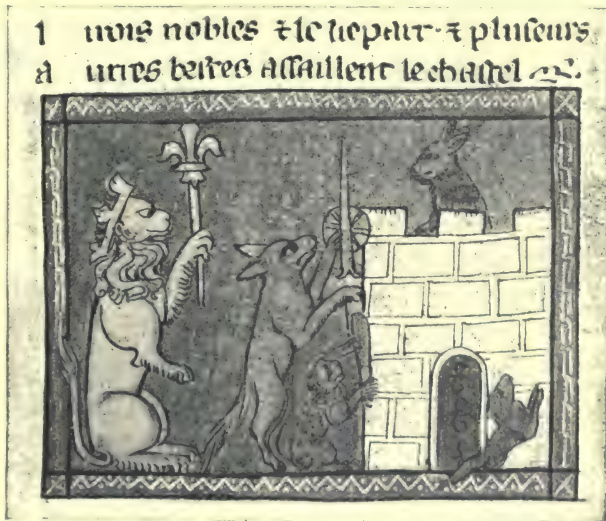 l irois nobles ⁊ le liepart · ⁊ pluſeurs
a utres beſtes aſſaillent le chaſtel